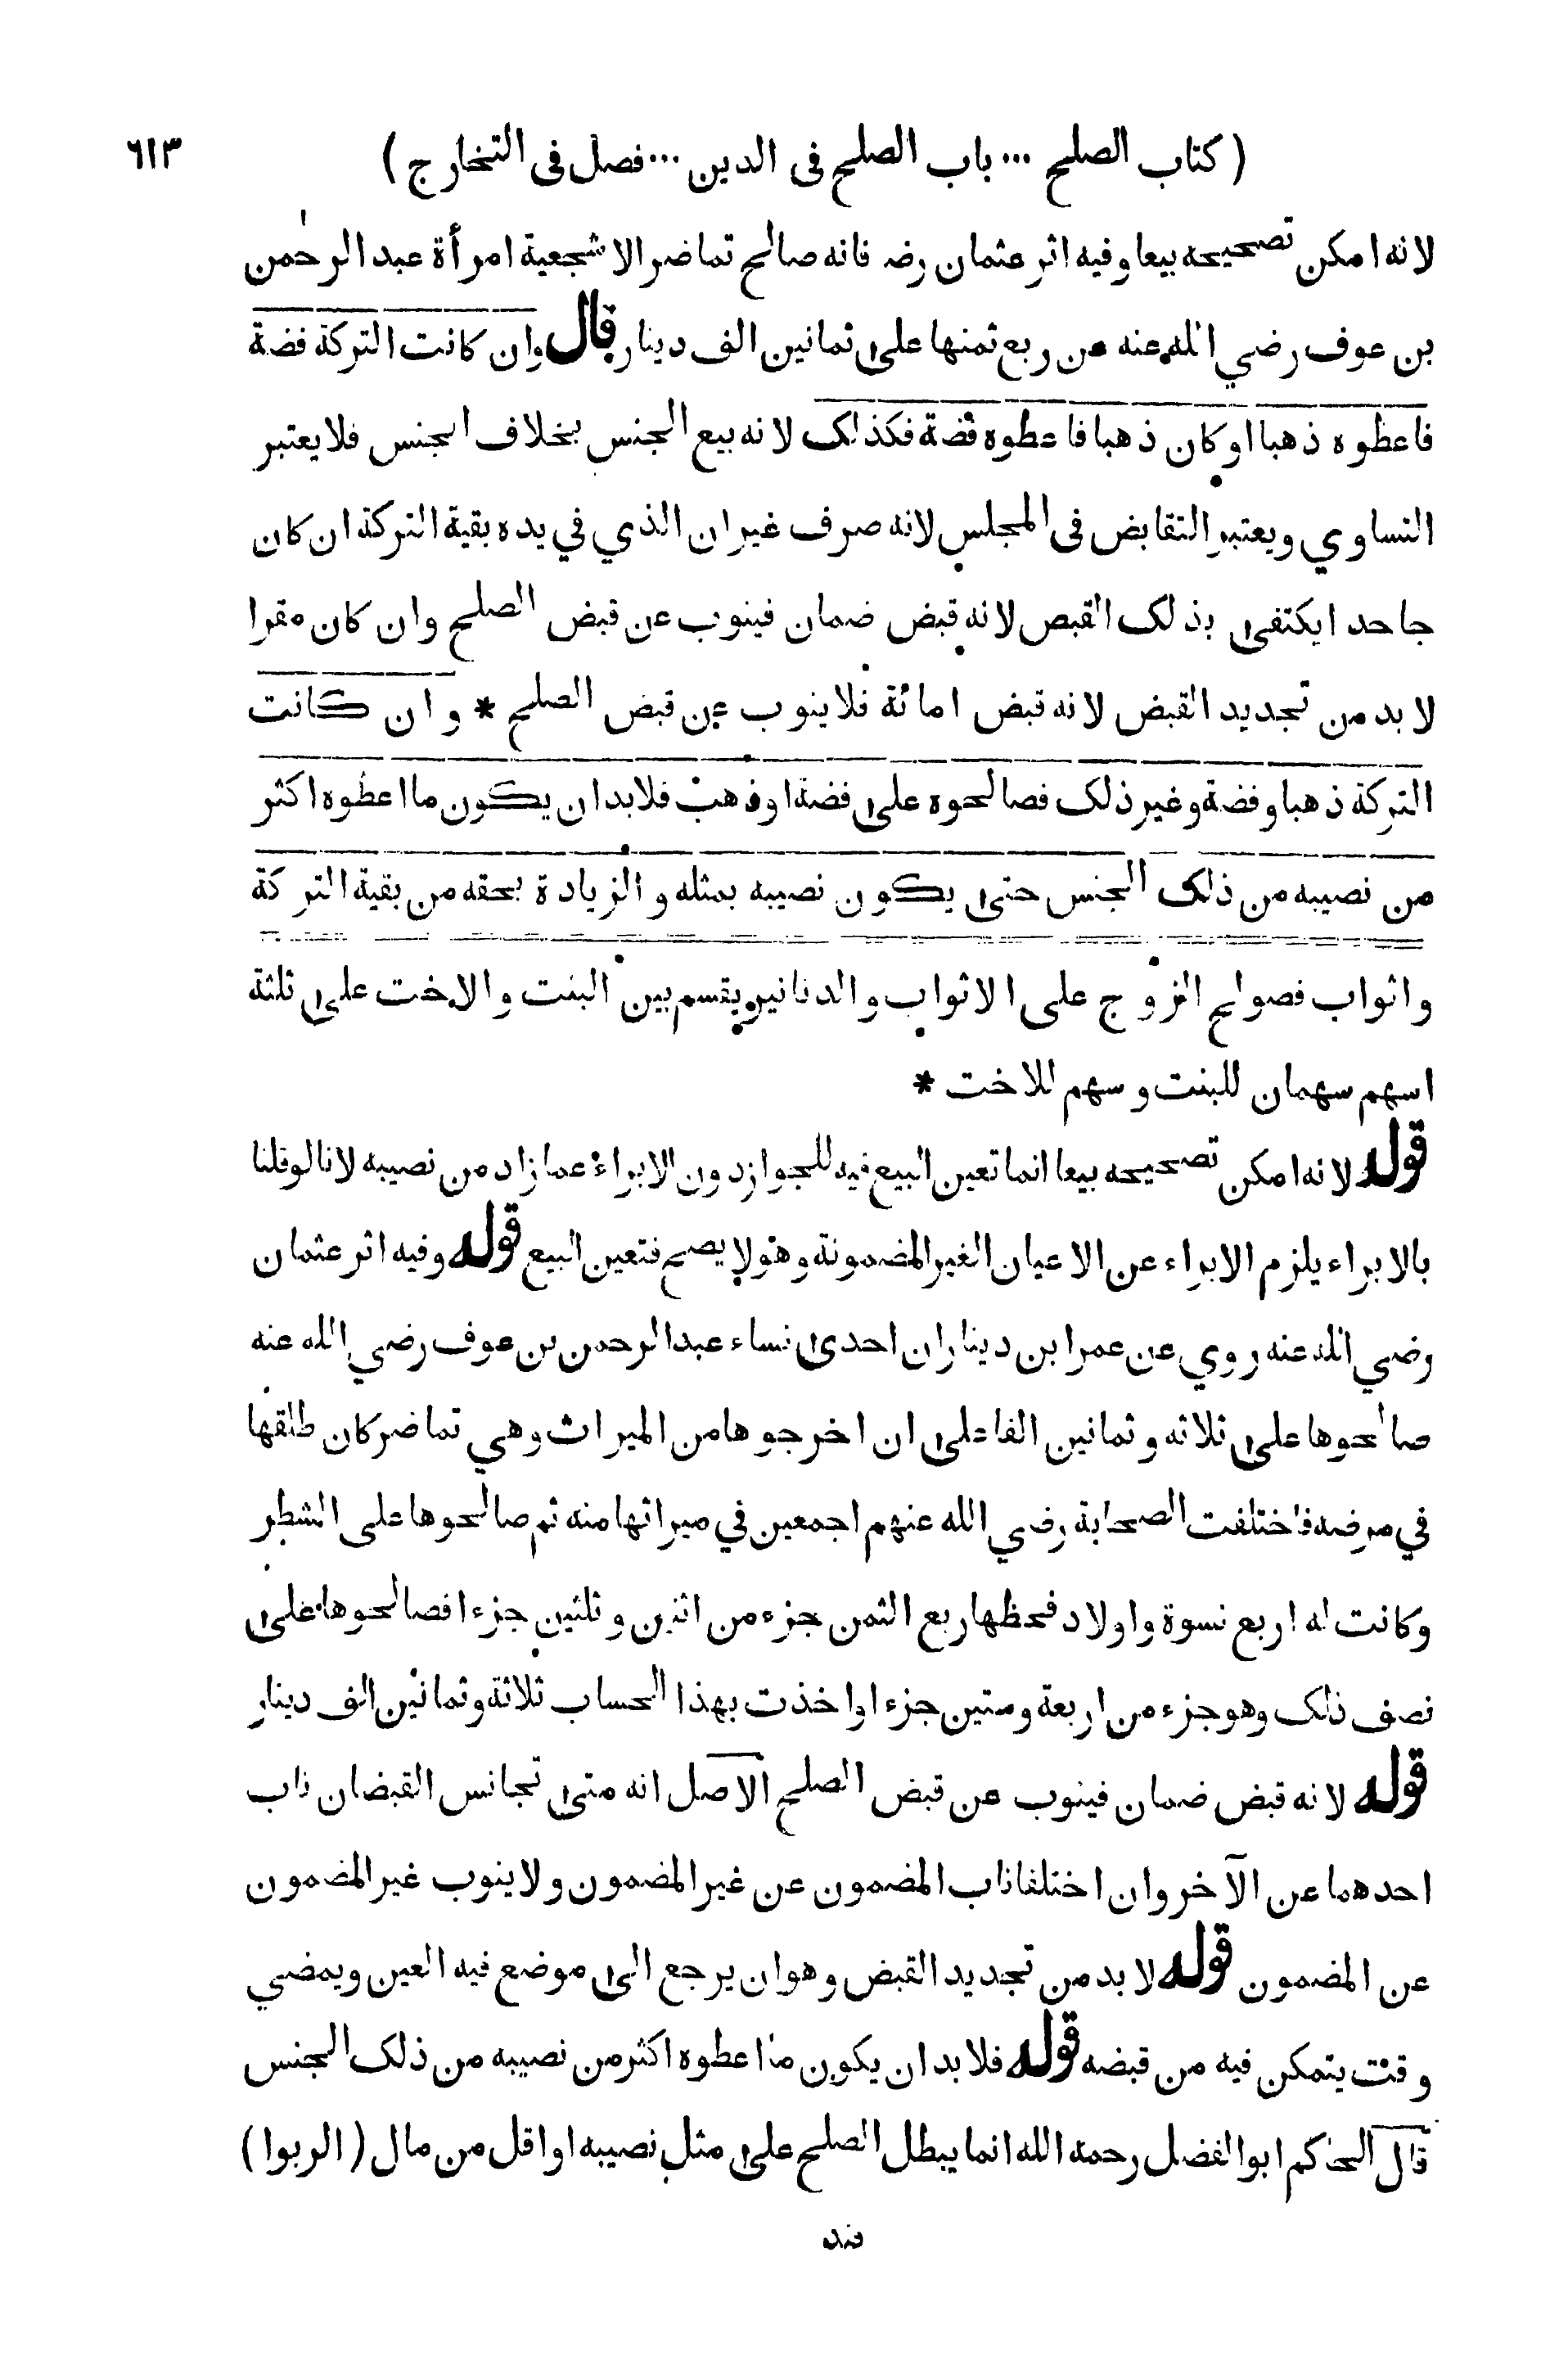 ( كتاب الصلح ... باب الصلح فى الدين ... فصل فى التخارج ) ٦١٣
لانه امكن تصحيحه بيعا وفيه اثر عثمان رضه فانه صالح تماضر الاشجعية امرأة عبد الرحمن
بن عوف رضي الله عنه عن ربع ثمنها على ثمانين الف دينار قال وان كانت التركة فضة
فاعطوه ذهبا او كان ذهبا فاعطوه فضة فكذلك لانه بيع الجنس بخلاف الجنس فلا يعتبر
التساوي ويعتبر التقابض فى المجلس لانه صرف غير ان الذي في يده بقية التركة ان كان
جاحدا يكتفى بذلك القبص لانه قبض ضمان فينوب عن قبض الصلح وان كان مقرا
لا بد من تجديد القبض لانه قبض امانة فلا ينوب عن قبض الصلح * وان كانت
التركة ذهبا وفضة وغير ذلك فصالحوه على فضة او ذهب فلا بد ان يكون ما اعطوه اكثر
من نصيبه من ذلك الجنس حتى يكون نصيبه بمثله والزيادة بحقه من بقية التركة
واثواب فصولح الزوج على الاثواب والدنانير يقسم بين البنت والاخت على ثلثة
اسهم سهمان للبنت وسهم للاخت *
قوله لانه امكن تصحيحه بيعا انما تعين البيع فيه للجواز دون الابراء عما زاد من نصيبه لانا لو قلنا
بالابراء يلزم الابراء عن الاعيان الغير المضمونة وهو لا يصح فتعين البيع قوله وفيه اثر عثمان
رضي الله عنه روي عن عمرا بن دينار ان احدى نساء عبد الرحمن بن عوف رضي الله عنه
صالحوها على ثلاثه وثمانين الفا على ان اخرجوها من الميراث وهي تماضر كان طلقها
في مرضه فاختلفت الصحابة رضي الله عنهم اجمعين في ميراثها منه ثم صالحوها على الشطر
وكانت له اربع نسوة واولاد فحظها ربع الثمن جزء من اثنين وثلثين جزءا فصالحوها على
نصف ذلك وهو جزء من اربعة وستين جزءا واخذت بهذا الحساب ثلاثة وثمانين الف دينار
قوله لانه قبض ضمان فينوب عن قبض الصلح الاصل انه متى تجانس القبضان ناب
احدهما عن الآخر وان اختلفا ناب المضمون عن غير المضمون ولا ينوب غير المضمون
عن المضمون قوله لا بد من تجديد القبض وهو ان يرجع الى موضع فيه العين ويمضي
وقت يتمكن فيه من قبضه قوله فلا بد ان يكون ما اعطوه اكثر من نصيبه من ذلك الجنس
قال الحاكم ابو الفضل رحمه الله انما يبطل الصلح على مثل نصيبه او اقل من مال ( الربوا )